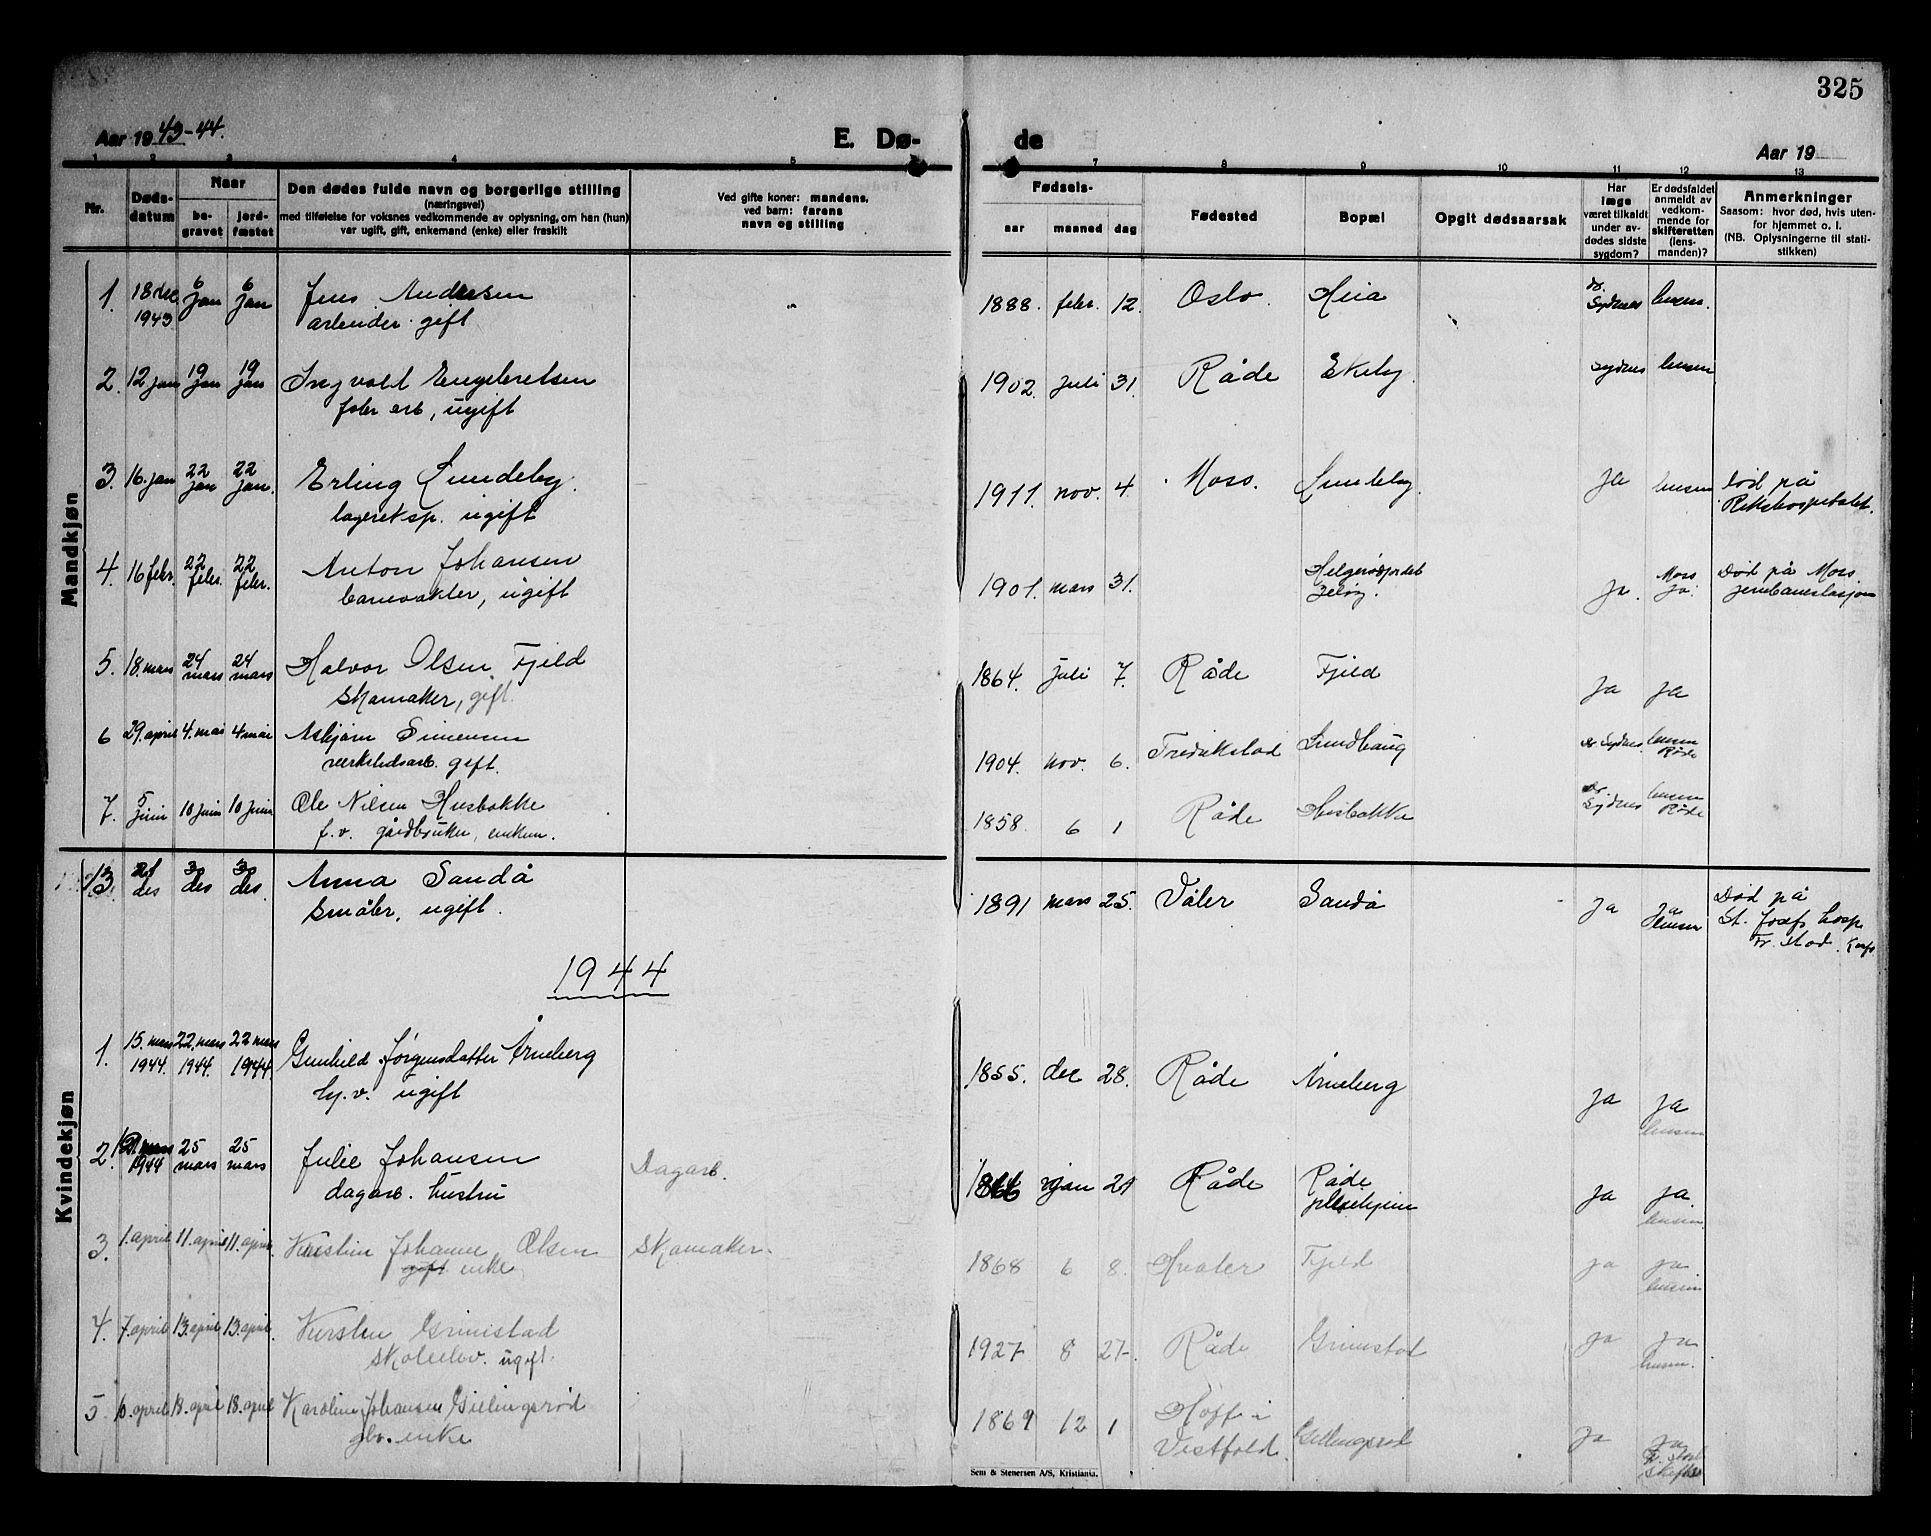 325
Aar 1943-44.
E. Dø- de
Aar 19
1 2 3 4 5 7 8 9 10 11 12 13
Nr.
Døds-
datum
Naar
be-
gravet
jord-
fæstet
Den dødes fulde navn og borgerlige stilling
(næringsvei)
med tilføielse for voksnes vedkommende av oplysning, om han (hun)
var ugift, gift, enkemand (enke) eller fraskilt
Ved gifte koner: mandens,
ved barn: farens
navn og stilling
Fødsels-
aar maaned dag
Fødested
Bopæl
Opgit dødsaarsak
Har
læge
været tilkaldt
under av-
dødes sidste
sygdom?
Er dødsfaldet
anmeldt av
vedkom-
mende for
skifteretten
(lens-
manden)?
Anmerkninger
Saasom: hvor død, hvis uten-
for hjemmet o. l.
(NB. Oplysningerne til stati-
stikken)
Mandkjøn
1. 18 dec. 1943 6 jan 6 jan Jens Andersen 1888. febr. 12. Oslo. Heia dr. Sydnes lensm.
arbeider gift
2. 12 jan 19 jan 19 jan Ingvald Engebretsen 1902. juli 31. Råde Ekeby. Sydnes lensm
fabr arb, ugift
3. 16. jan 22 jan 22 jan. Erling Lundeby. 1911. nov. 4. Moss. Lundeby. ja lensm død på
lagereksp. ugift Rikshospitalet.
4. 16 febr. 22 febr. 22 febr. Anton Johansen 1901. mars 31. Helgerødfordet Jeløy. ja. Moss ja. Død på Moss
banevakter, ugift jernbanestasjon
5. 18. mars 24 mars 24 mars Halvor Olsen Fjeld 1864. juli 7. Råde Fjeld ja ja
skomaker, gift.
6 29. april 4. mai 4 mai Asbjørn Simensen 1904. nov. 6. Fredrikstad Lundhaug dr Sydnes lensm Råde
verkstedsarb. gift.
7. 5 juni 10 juni 10 juni Ole Nilsen Husbakke 1858. 6 1 Råde Husbakke dr. Sydnes lensm Råde
f.v. gårdbruker, enkem.
Kvindekjøn
13. 21 des 30 des 30 des. Anna Sandå 1891 mars 25. Våler Sandå ja ja Død på
småbr, ugift. St. Josefs hosp
Fr. stad.
1944
1. 15. mars 1944. 22. mars 1944. 22 mars 1944. Gunhild Jørgensdatter Årneberg 1855. dec 28. Råde Årneberg ja ja lensm
hj.v. ugift
2. mars 1944 25 mars 25 mars Julie Johansen Dagarb. 1866 jan 21 Råde Råde pleiehjem ja ja lensm
dagarb. hustru
3. 1. april 11. april 11. april. Kirstine Johanne Olsen Skomaker. 1868 6 8. Hvaler Fjeld ja ja lensm
gift enke
4. 7. april 13. april 13. april. Kirsten Grimstad 1927 8 27. Råde Grimstad ja ja lensm.
skoleelev. ugift.
5 april 18. april 18. april Karoline Johansen Gillingsrød 1869 12 1 Hoff i Vestfold. Gillingsrød ja ja
glv. enke
Sem & Stenersen A/S, Kristiania.